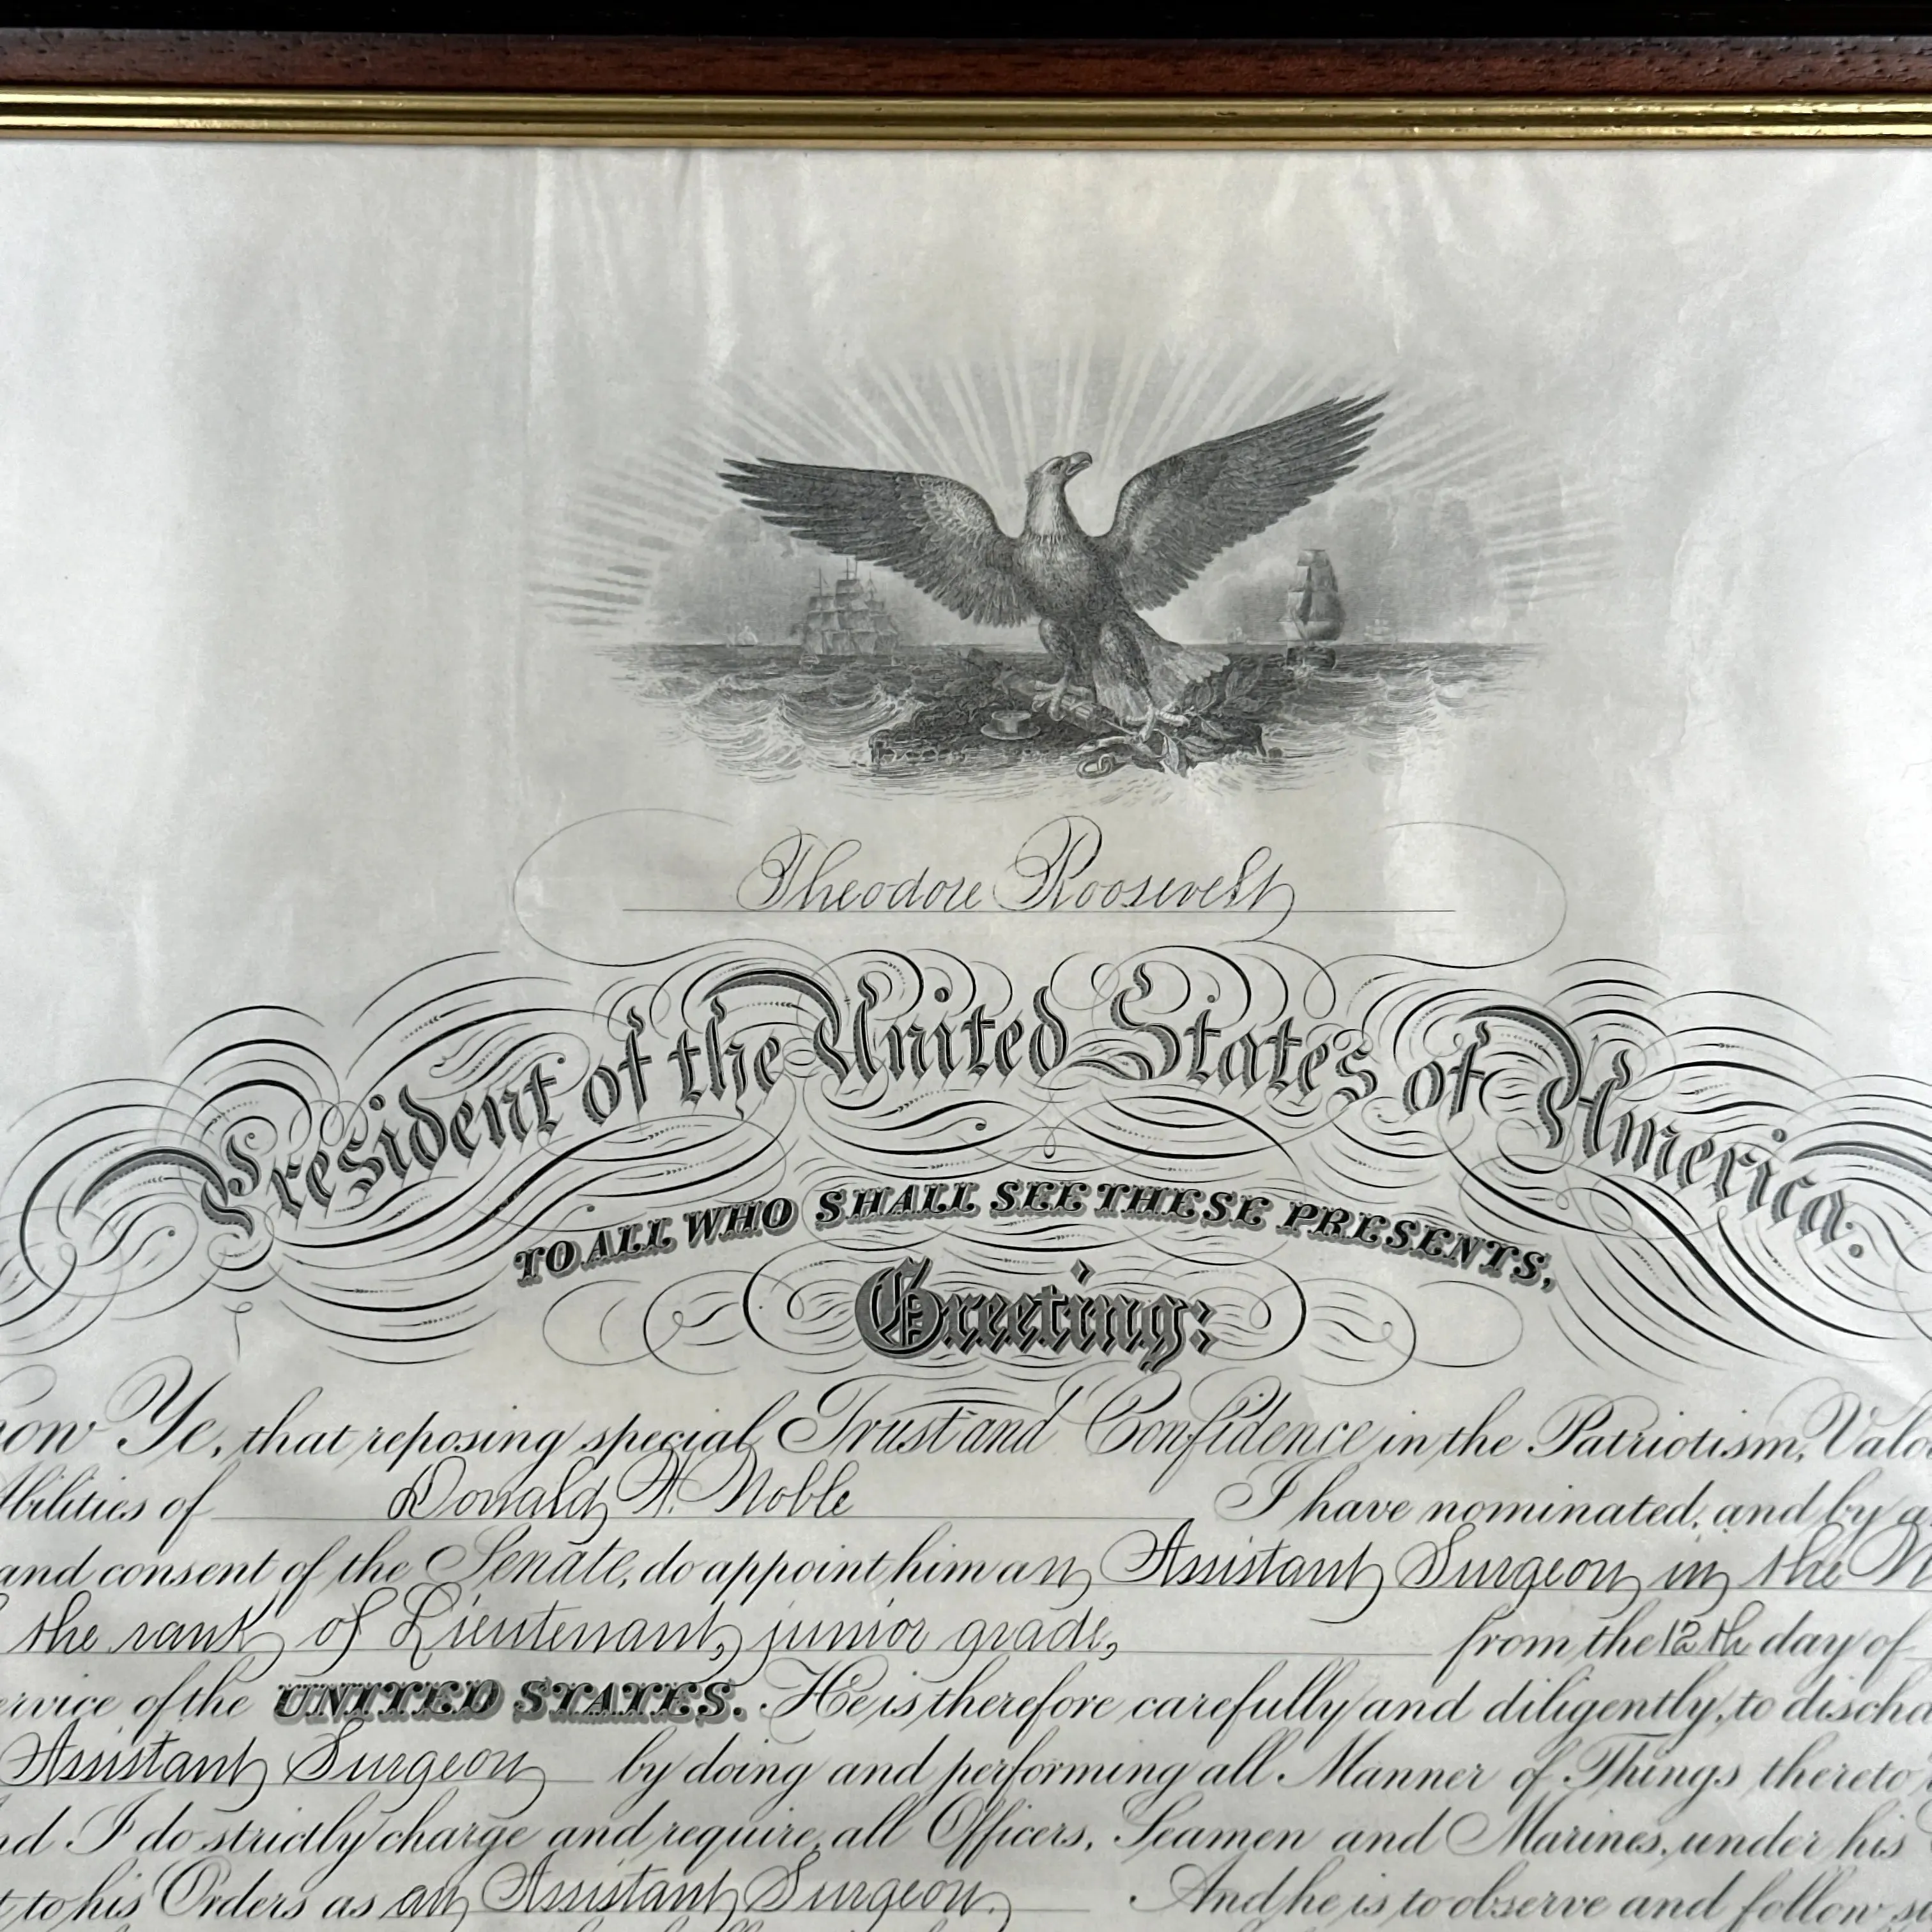 Theodore Roosevelt
President of the United States of America.
TO ALL WHO SHALL SEE THESE PRESENTS,
Greeting:
now Ye, that reposing special Trust and Confidence in the Patriotism, Valo
Abilities of Donald H. Noble I have nominated, and by a
and consent of the Senate, do appoint him an Assistant Surgeon in the N
the rank of Lieutenant, junior grade, from the 12th day of
ervice of the UNITED STATES. He is therefore carefully and diligently to discha
Assistant Surgeon by doing and performing all Manner of Things thereto
nd I do strictly charge and require all Officers, Seamen and Marines, under his
t to his Orders as an Assistant Surgeon. And he is to observe and follow su